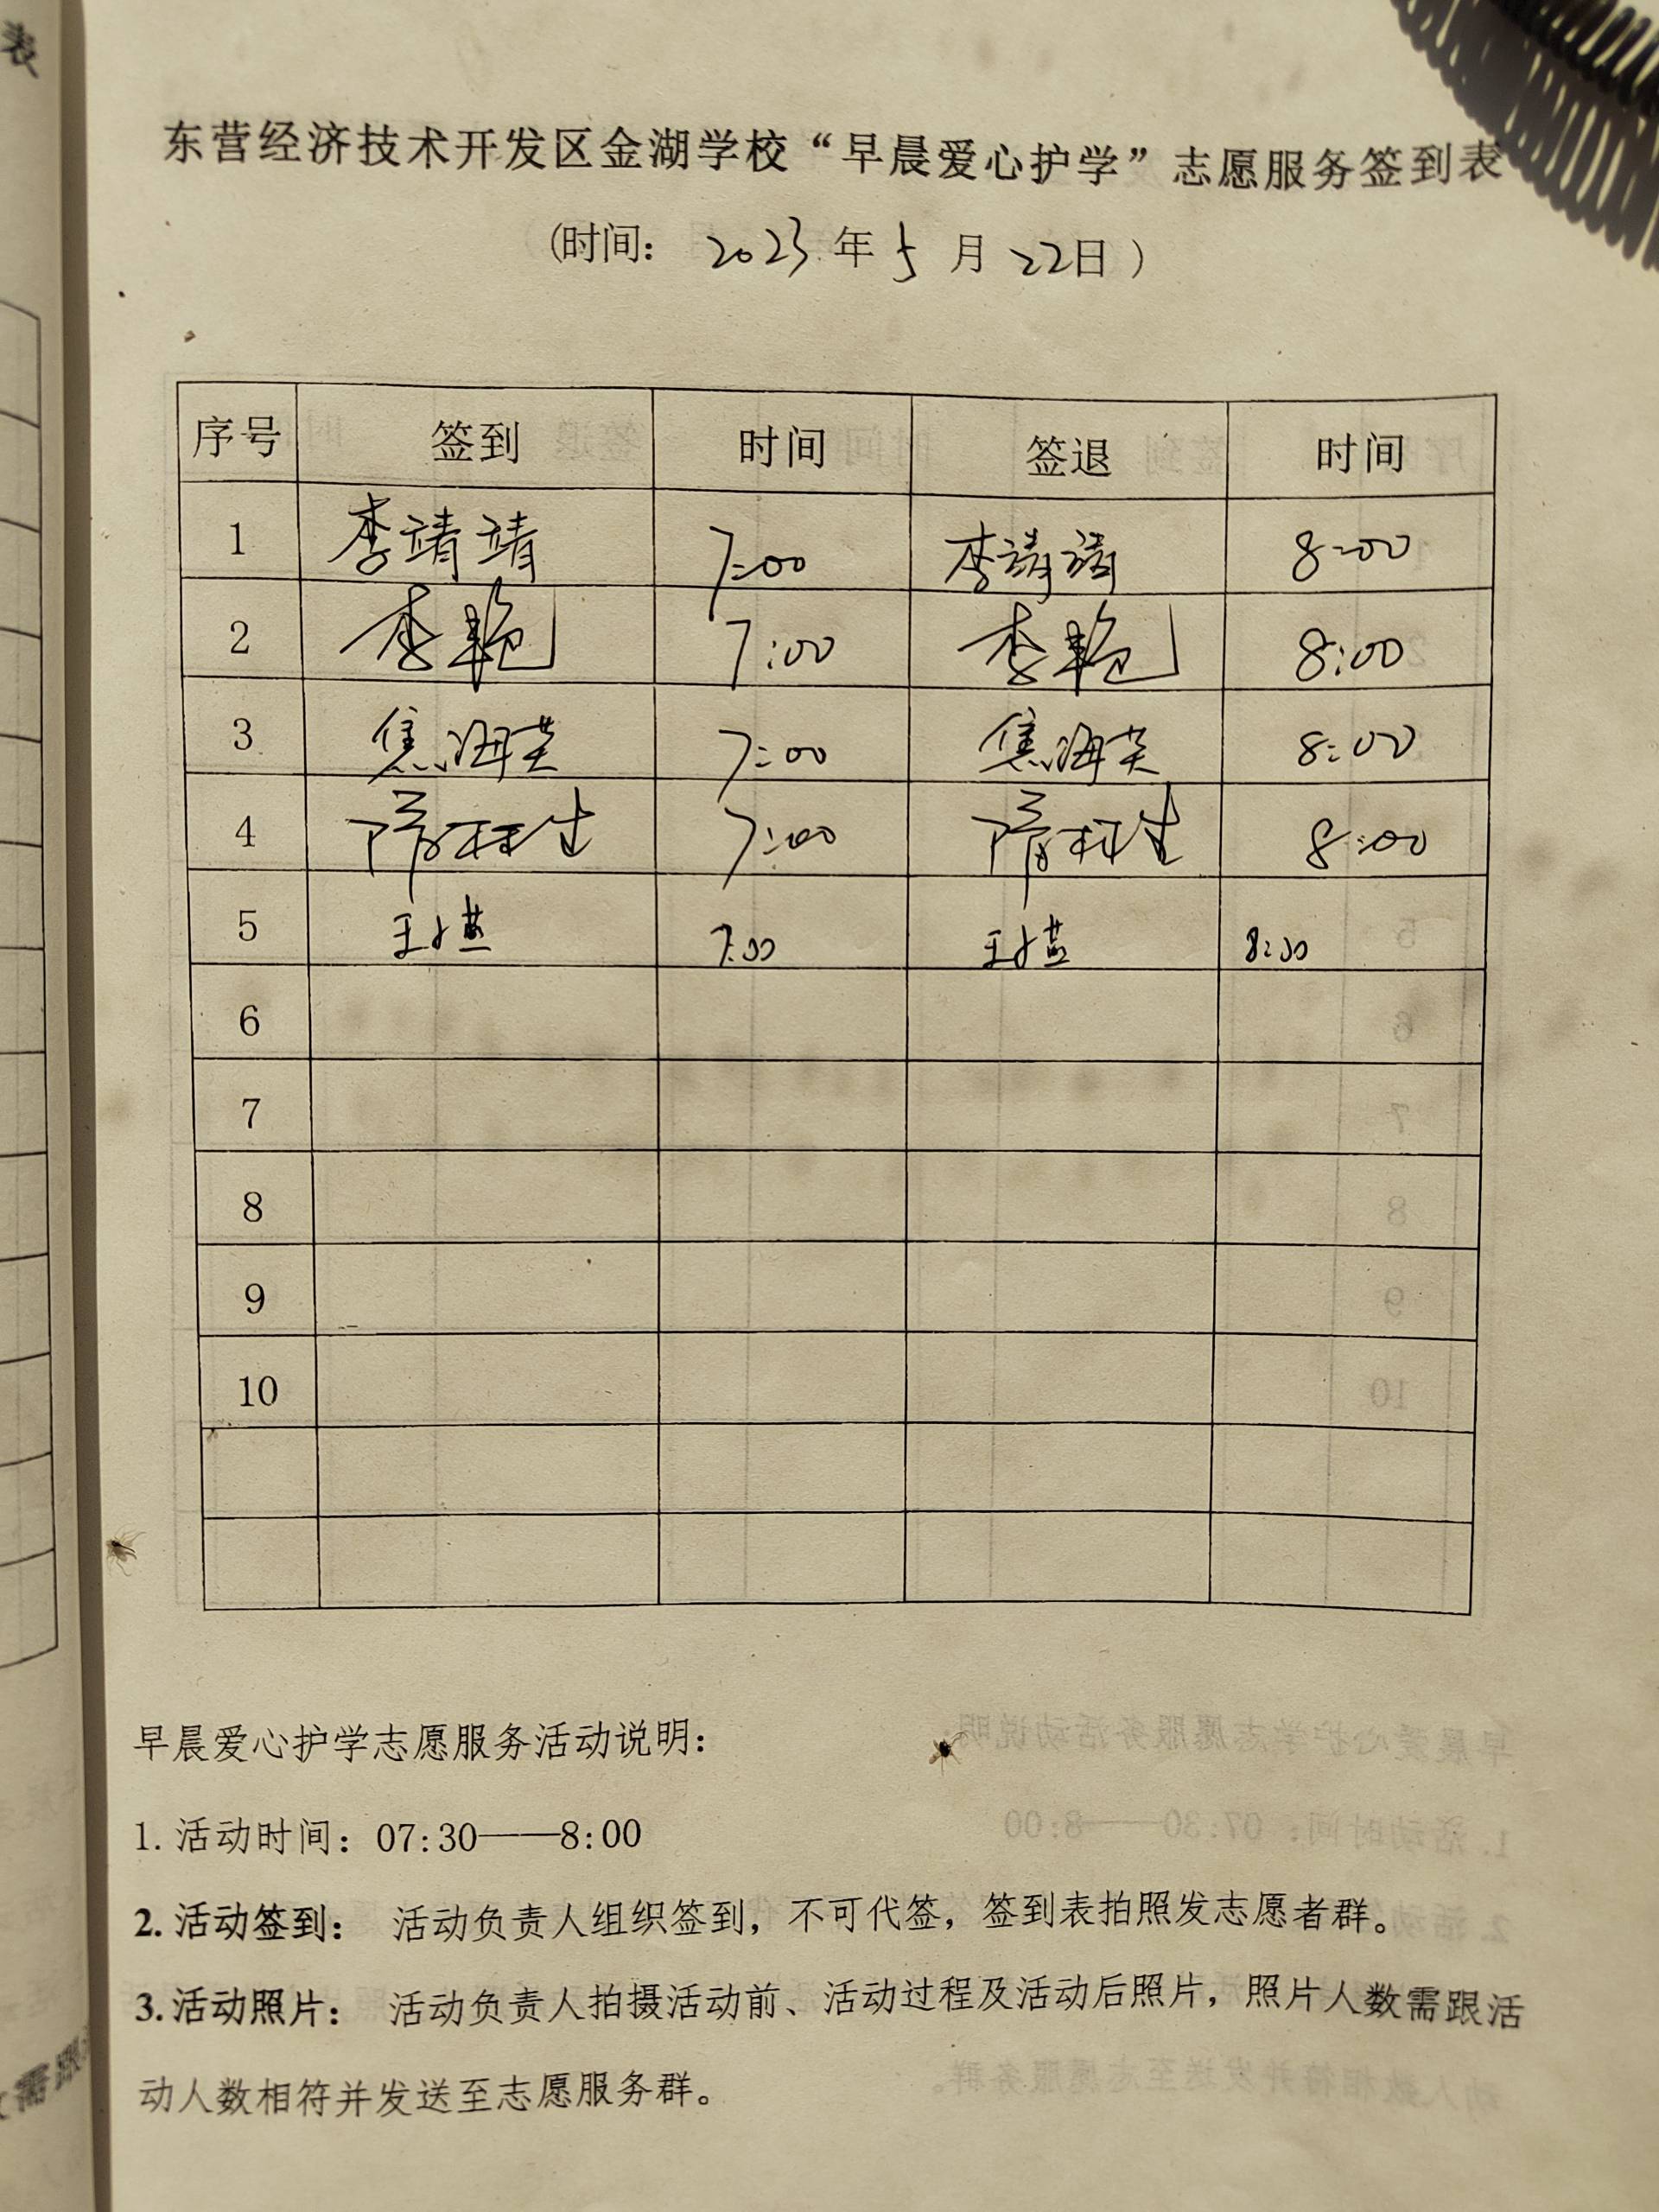 东营经济技术开发区金湖学校“早晨爱心护学”志愿服务签到表
(时间: 2023 年 5 月 22日 )
序号 签到 时间 签退 时间
1 李靖靖 7:00 李靖靖 8:00
2 李艳 7:00 李艳 8:00
3 焦海英 7:00 焦海英 8:00
4 7:00 8:00
5 7:00 8:00
6
7
8
9
10
早晨爱心护学志愿服务活动说明:
1. 活动时间: 07:30——8:00
2. 活动签到: 活动负责人组织签到，不可代签，签到表拍照发志愿者群。
3. 活动照片: 活动负责人拍摄活动前、活动过程及活动后照片，照片人数需跟活
动人数相符并发送至志愿服务群。